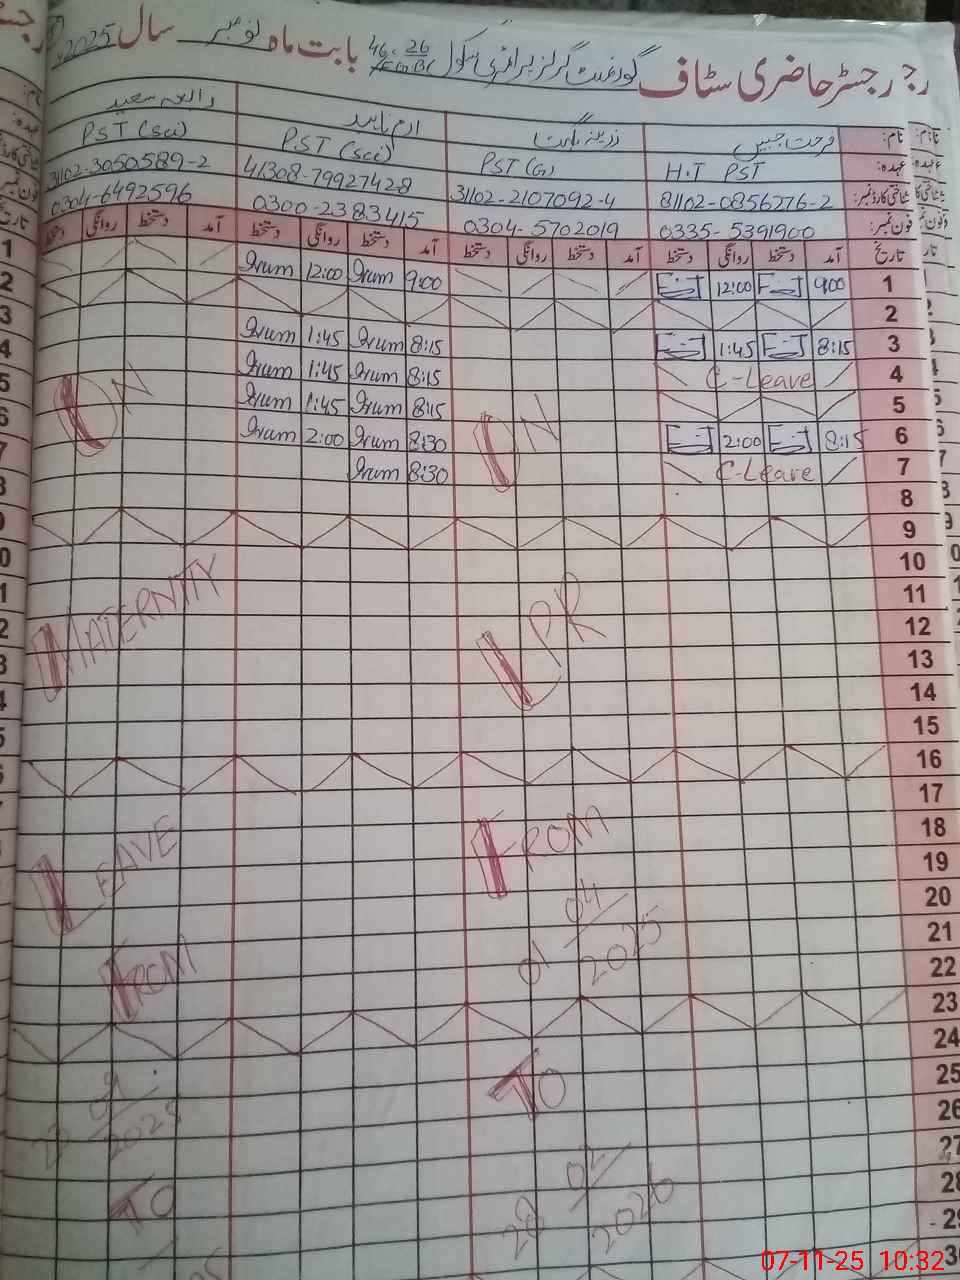 رجسٹر حاضری سٹاف گورنمنٹ گرلز پرائمری سکول 46-26/EG.BC بابت ماہ نومبر سال 2025
نام: فرحت جبیں زرینہ نگہت ارم ناہید رابعہ سعید
عہدہ: H.T PST PST (G) PST (Sci) PST (Sci)
شناختی کارڈ نمبر: 81102-0856276-2 31102-2107092-4 41308-79927428 31102-3050589-2
فون نمبر: 0335-5391900 0304-5702019 0300-2383415 0304-6492596
تاریخ آمد دستخط روانگی دستخط آمد دستخط روانگی دستخط آمد دستخط روانگی دستخط آمد دستخط روانگی دستخط
1 9:00 12:00 9:00 Irum 12:00 Irum
2
3 8:15 1:45 8:15 Irum 1:45 Irum
4 C-Leave 8:15 Irum 1:45 Irum
5 8:15 Irum 1:45 Irum
6 8:15 2:00 8:30 Irum 2:00 Irum
7 C-Leave 8:30 Irum
8
9
10
11
12
13
14
15
16
17
18
19
20
21
22
23
24
25
26
27
28
29
30
ON
LPR
FROM
01 04/2025
TO
28 02/2026
ON
MATERNITY
LEAVE
FROM
09/2025
TO
07-11-25 10:32